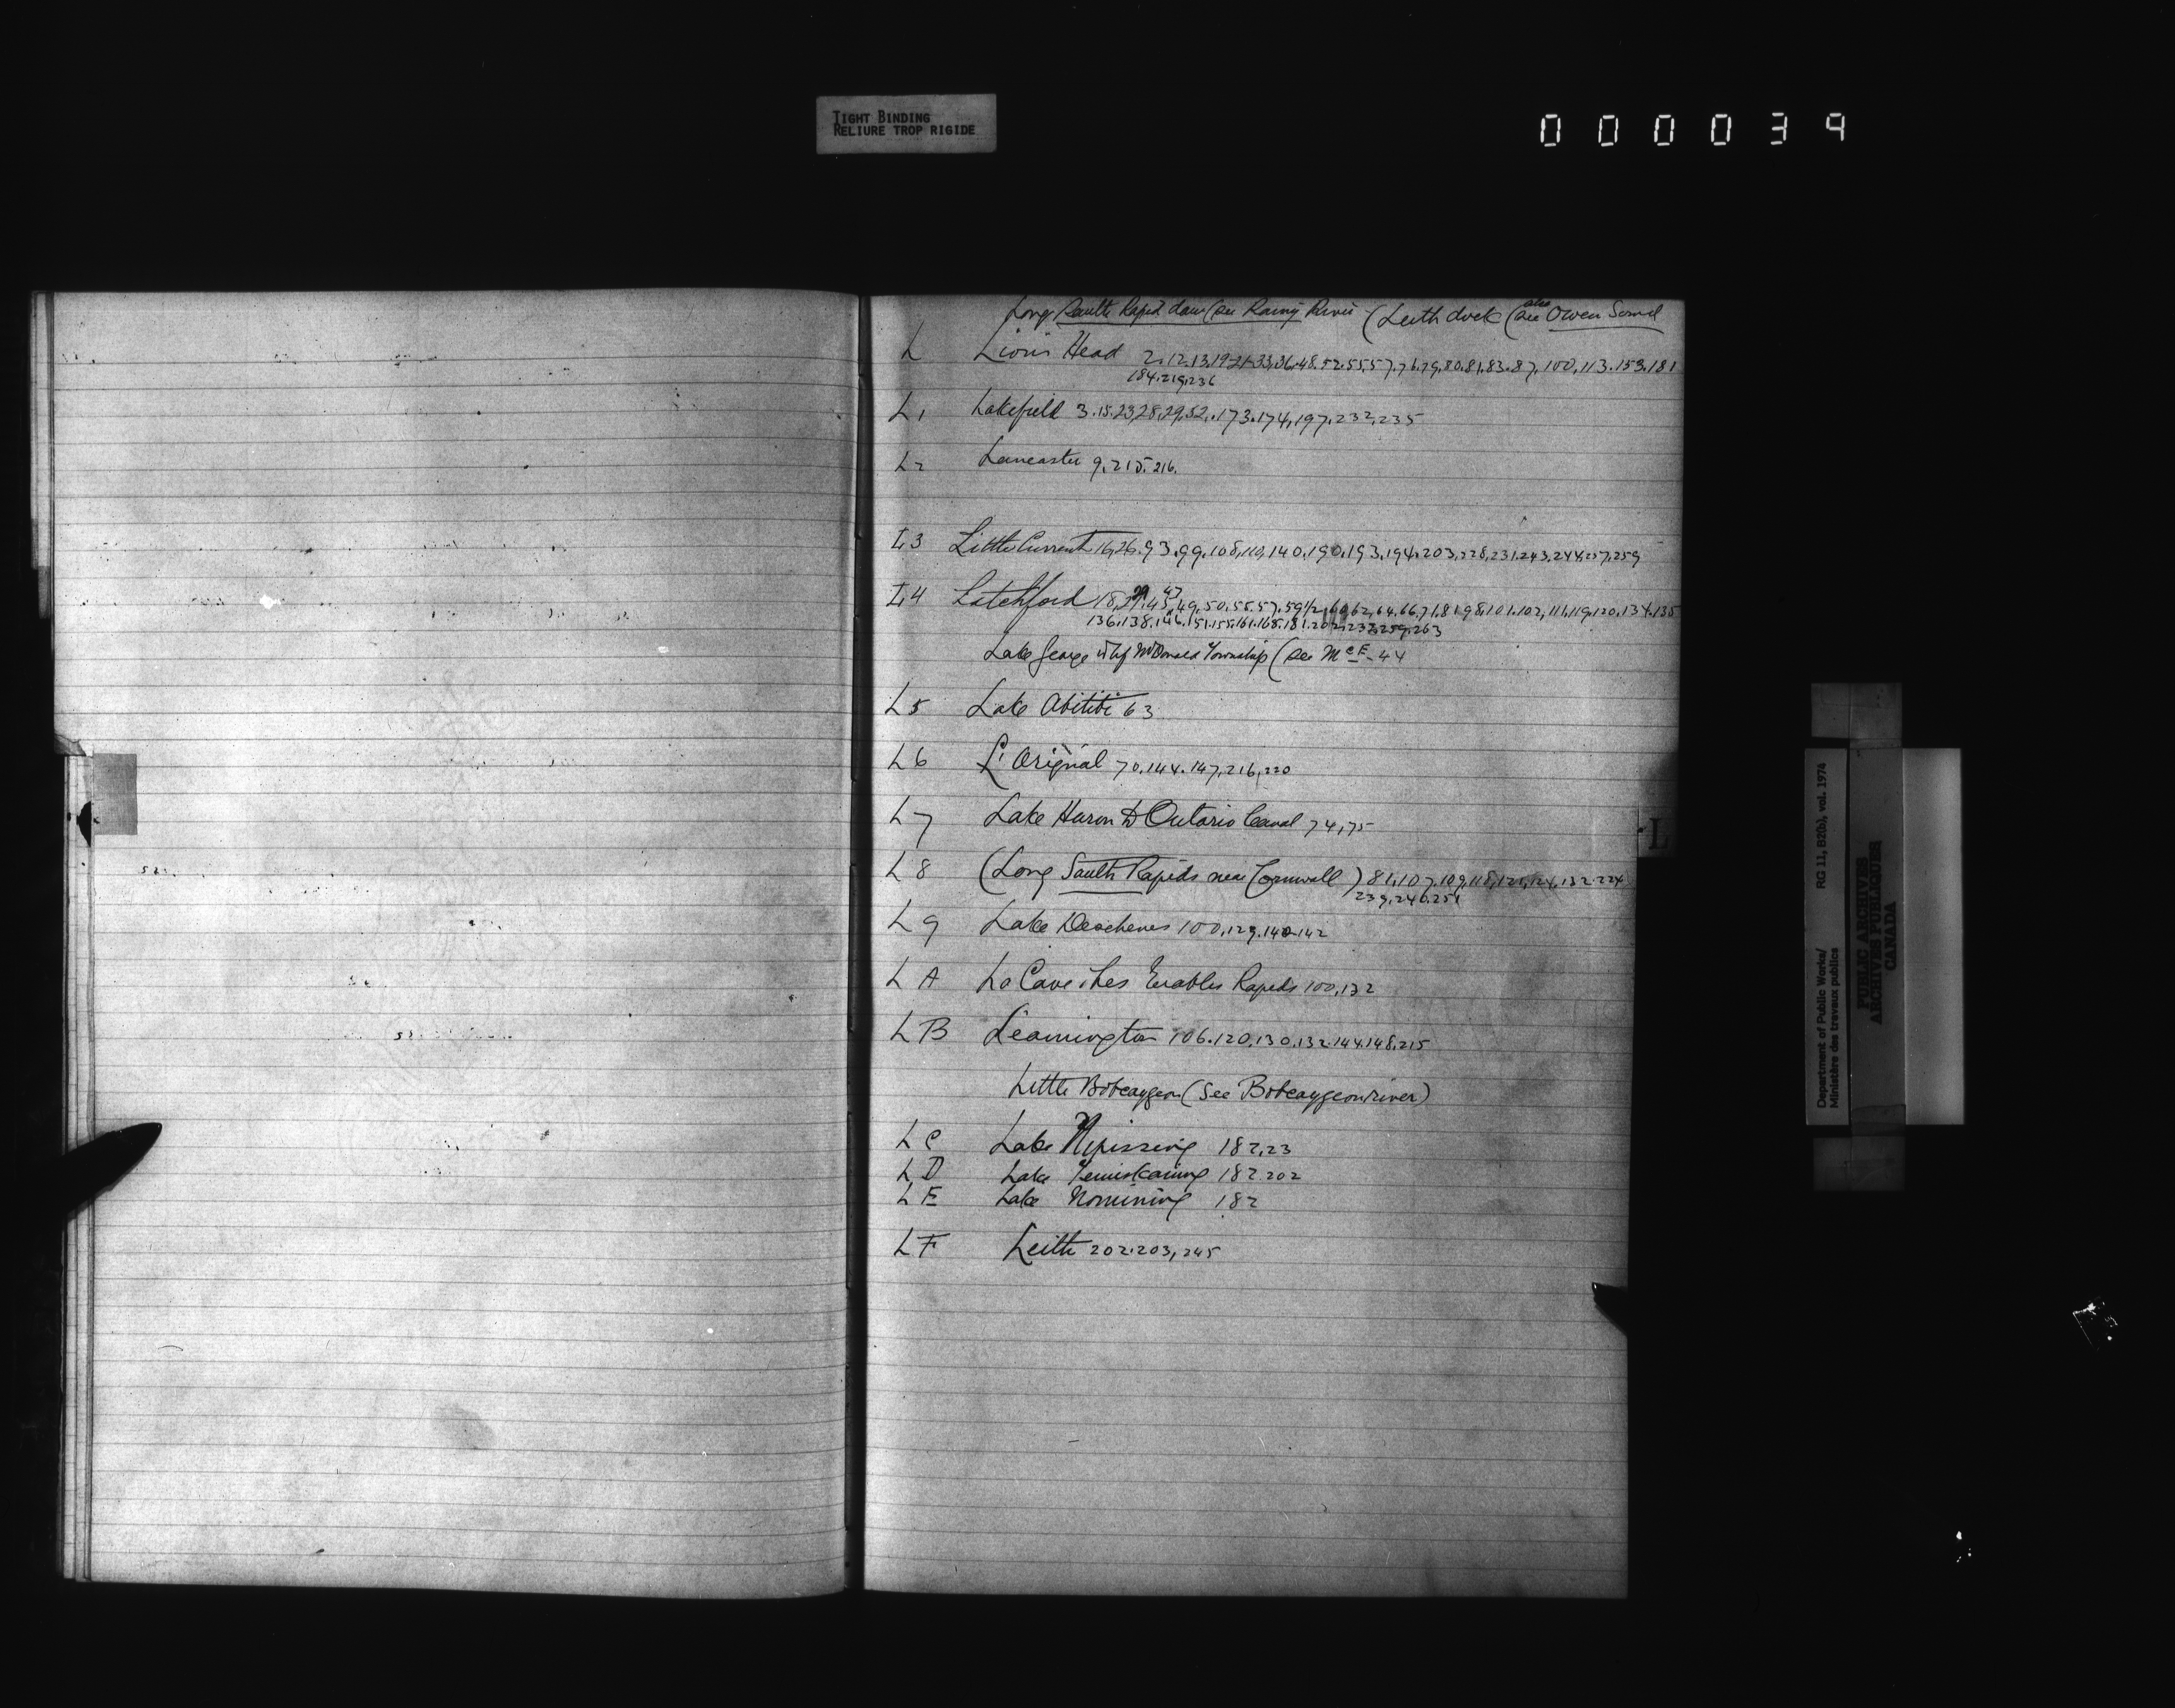 TIGHT BINDING
RELIURE TROP RIGIDE
000039
Long Sault Rapid dam (see Rainy River (Leith dock (see also Owen Sound
L Lions Head 2.12.13.19-21-33,36.48.52.55.57.76.79.80.81.83.87.100.113.153.181
184.219.236
L1 Lakefield 3.15.23,28,29,52,.173.174,197.232,235
L2 Lancaster 9.215.216.
L3 Little Current 16,26.93.99.108,110,140,190,193,194.203,228,231.243.244.257,259
L4 Latchford 18, 49.50.55.57.59 1/2 62.64.66.71.81.98.101.102,111,119,120.134.135
136.138.146.151.155.161.165.181.202.233.259.263
Lake George whf McDonald Township (see McE-44
L5 Lake Abitibi 63
L6 L'Orignal 70.144.147,216,220
L7 Lake Huron to Ontario Canal 74,75
L8 (Long Sault Rapids near Cornwall) 81,107.109,118,121,124,132.224
239.246.251
L9 Lake Deschenes 100,129.140.142
LA La Cave, Les Erables Rapids 100,132
LB Leamington 106.120.130.132.144.148.215
Little Bobcaygeon (See Bobcaygeon river)
LC Lake Nipissing 182,23
LD Lake Temiskaming 182.202
LE Lake Nomining 182
LF Leith 202.203,245
L
Department of Public Works/ RG 11, B2(b), vol. 1974
Ministère des travaux publics
PUBLIC ARCHIVES
ARCHIVES PUBLIQUES
CANADA